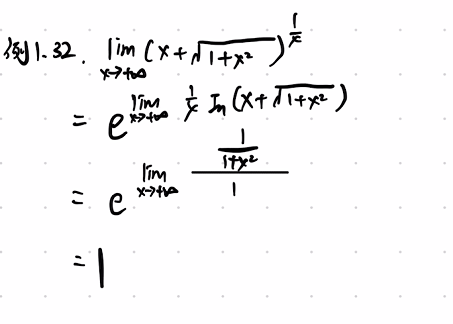 例1.32. lim_{x→+∞} (x+√(1+x²))^{1/x}
= e^{lim_{x→+∞} 1/x ln(x+√(1+x²))}
= e^{lim_{x→+∞} (1/(1+x²))/1}
= 1